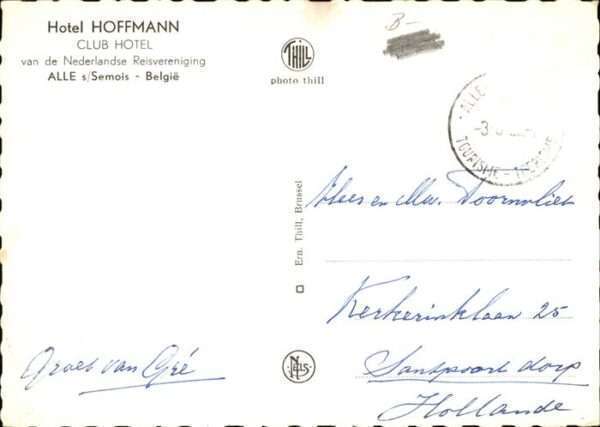 Hotel HOFFMANN
CLUB HOTEL
van de Nederlandse Reisvereniging
ALLE s/Semois - België
THILL
photo thill
B-
ALLE
-3
TOURISME -
en Mw. Doornvliet
Ern. Thill, Brussel
25
Santpoort dorp
Hollande
Groet van Gré
NELS